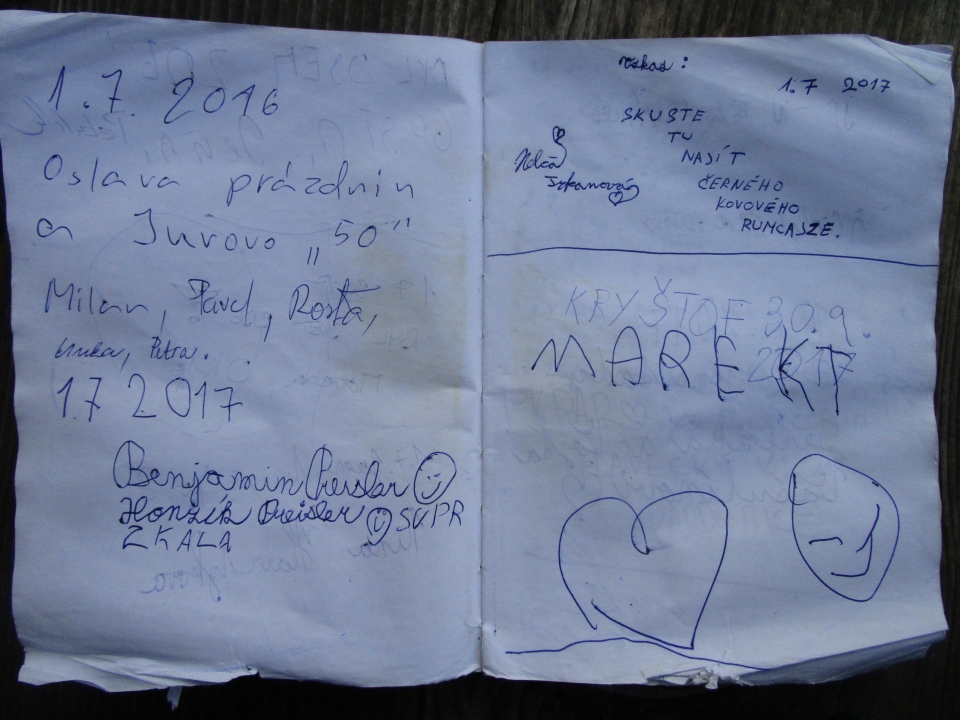 1.7. 2016
Oslava prázdnin
a Jurovo „50"
Milan, Pavel, Rosťa,
Petra.
1.7 2017
Benjamin Preisler
Honzík Preisler SUPR
ZKALA
úkas:
1.7 2017
SKUSTE
TU
NAJÍT
ČERNÉHO
KOVOVÉHO
RUMCAJZE.
KRYŠTOF 30.9.
2017
MAREK